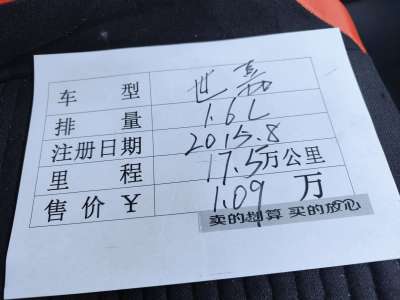 车型 世嘉
排量 1.6L
注册日期 2015.8
里程 17.5万公里
售价¥ 1.09万
卖的划算 买的放心